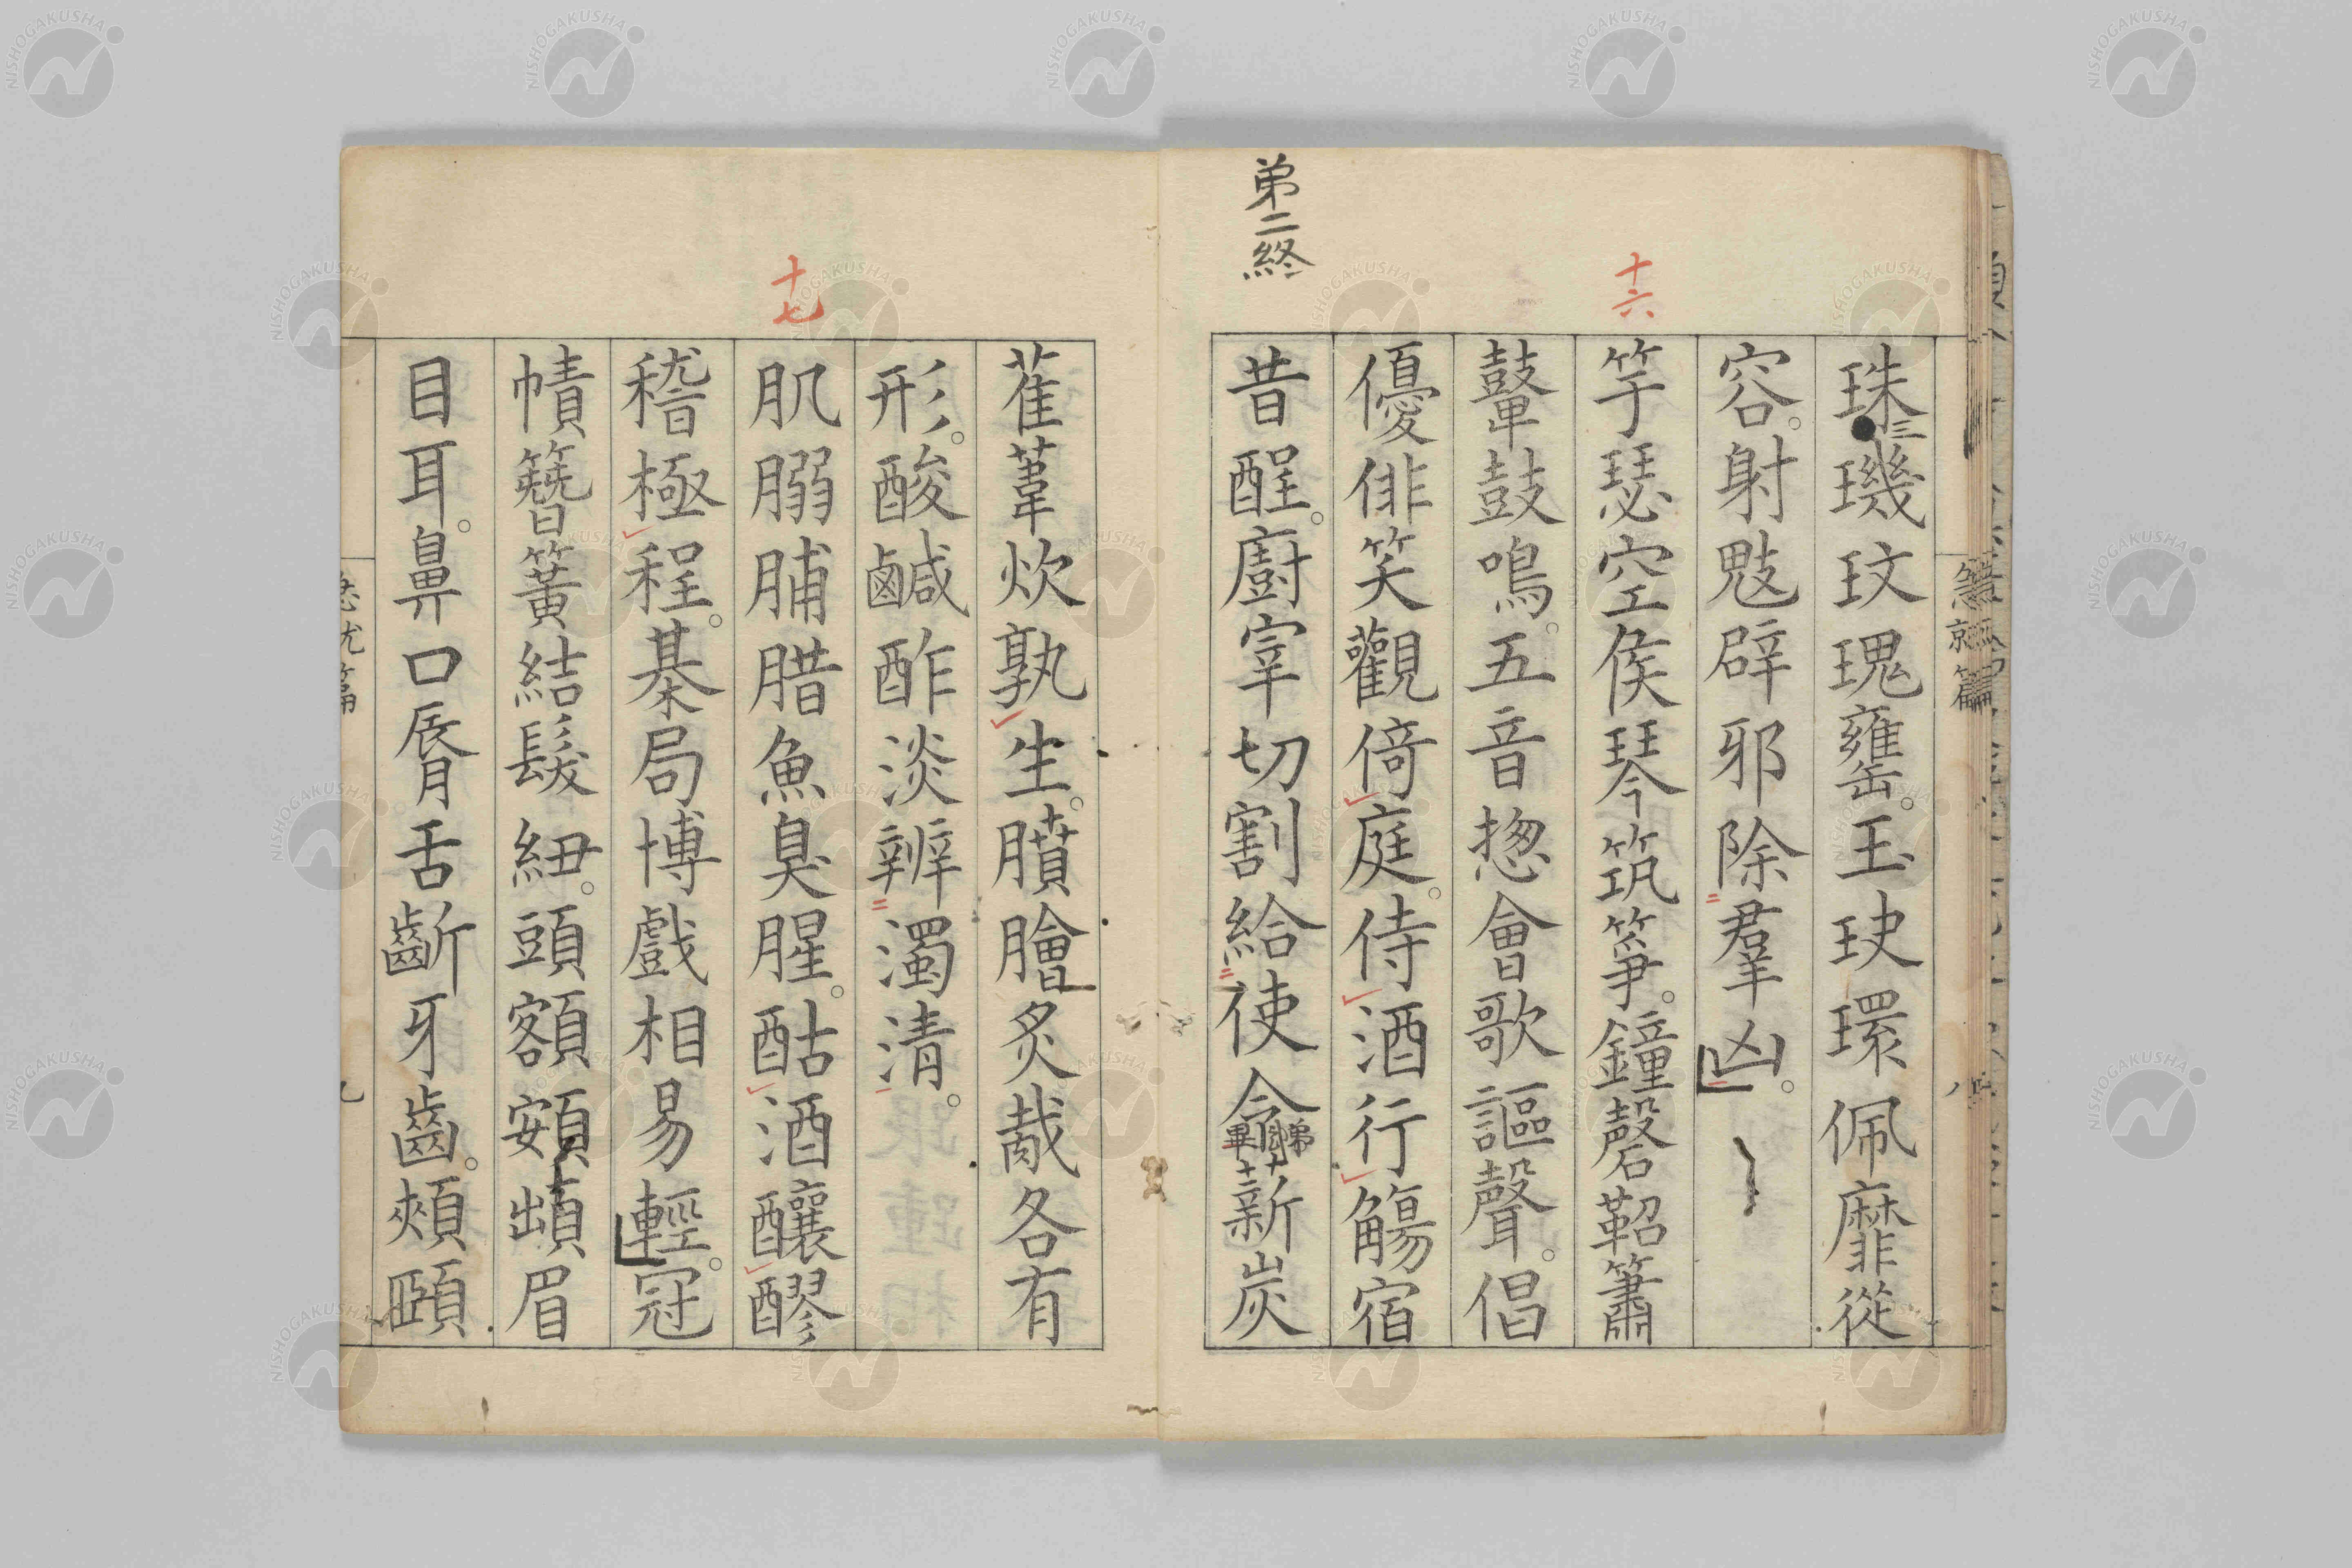 弟二終
十六
珠璣玟瑰甕。玉玦環佩靡從
容。射鬾辟邪除羣凶。
竽瑟空侯琴筑箏。鐘磬鞀簫
鼙鼓鳴。五音揔會歌謳聲。倡
優俳笑觀倚庭。侍酒行觴宿
昔酲。廚宰切割給使令薪炭
十七
萑葦炊孰生。膹膾炙胾各有
形。酸鹹酢淡辨濁清。
肌䐞脯腊魚臭腥。酤酒釀醪
稽極程。棊局博戲相易輕。冠
幘簪簧結髮紐。頭額頞䪼眉
目耳。鼻口脣舌齗牙齒。頰頤
急就篇
九
NISHOGAKUSHA